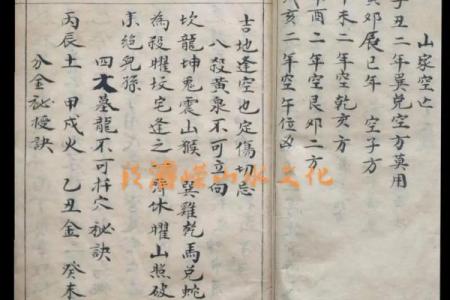 山家空亡
子丑二年巽兑空方莫用
寅卯辰巳年 空子方
午未二年空乾亥方
酉二年空艮卯二方
亥二年空午位凶
吉地逢空也定傷切忌
八殺黃泉不可立向
坎龍坤兎震山猴 巽雞乾馬兑蛇
為殺曜坟宅逢之 齊休曜山照破
絕兒孫
四大墓龍不可扦穴秘訣
丙辰土 甲戌火 乙丑金 癸未
分金秘授訣
山水文化